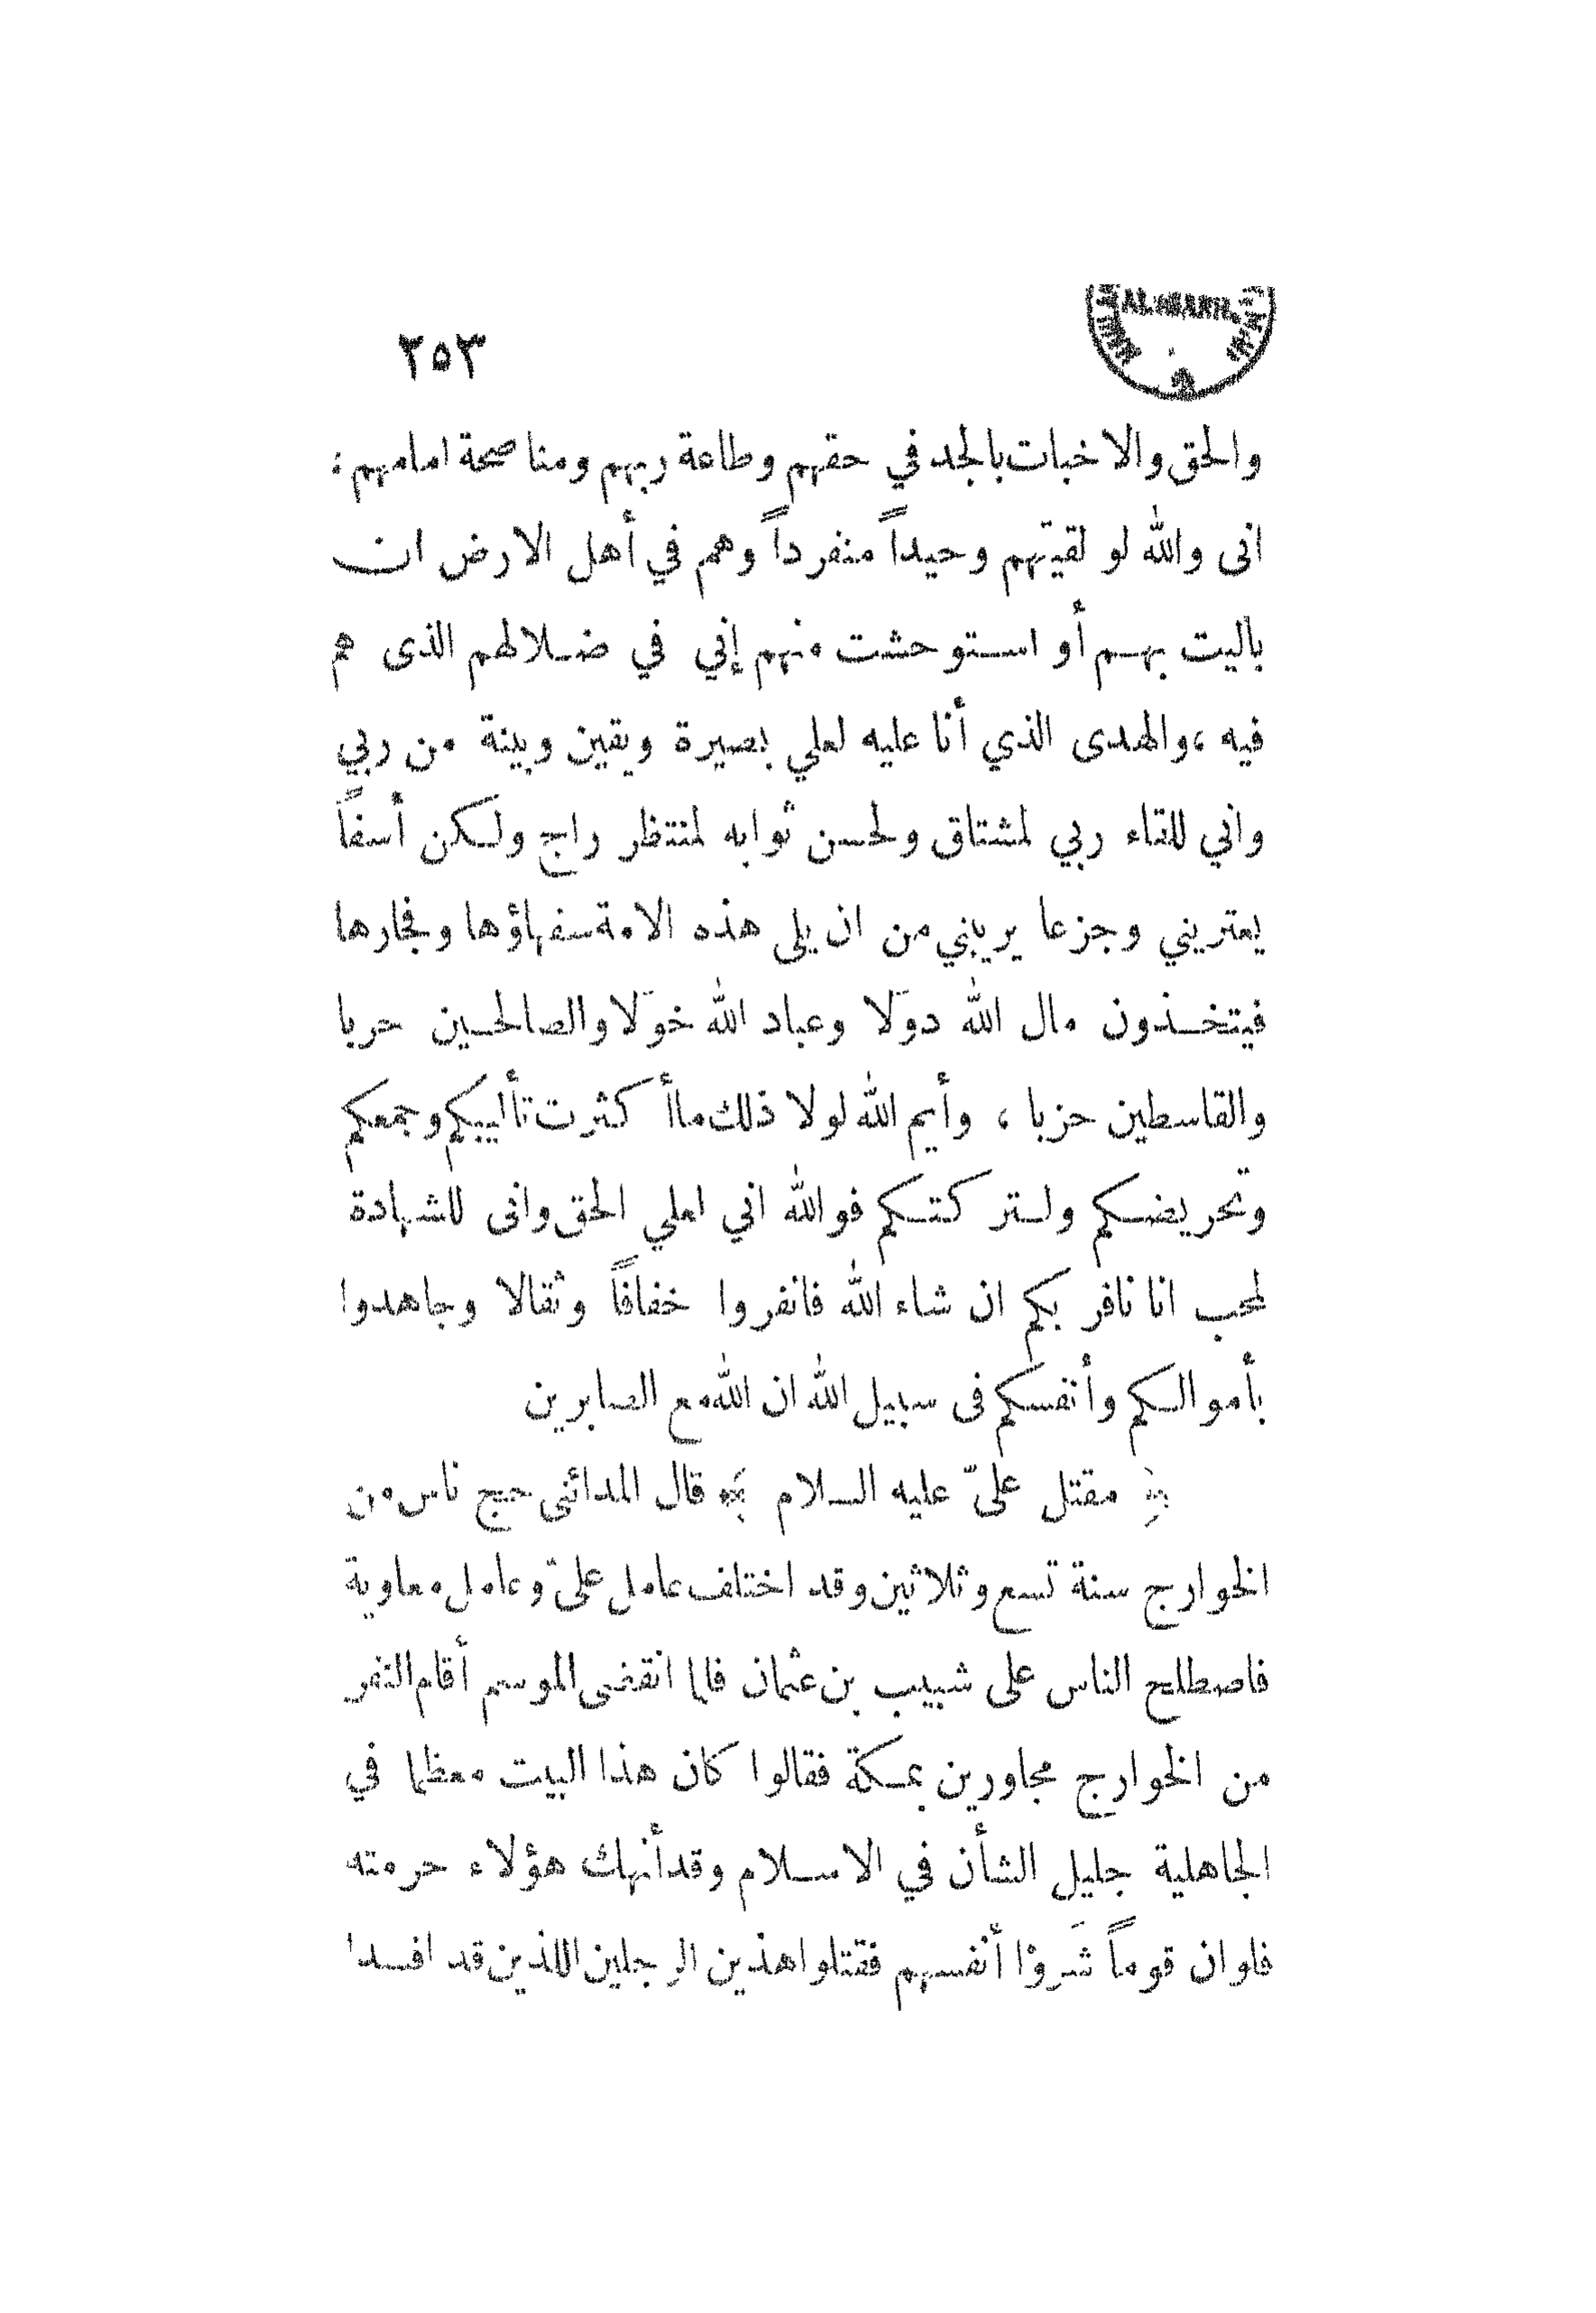 ٢٥٣
والحق والاخبات بالجد في حقهم وطاعة ربهم ومناصحة امامهم :
انى والله لو لقيتهم وحيداً منفرداً وهم في أهل الارض ان
باليت بهم أو استوحشت منهم إني في ضلالهم الذى هم
فيه ، والهدى الذي أنا عليه لعلي بصيرة ويقين وبينة من ربي
واني للقاء ربي لمشتاق ولحسن ثوابه لمنتظر راج ولكن أسفاً
يعتريني وجزعا يريبني من ان يلى هذه الامة سفهاؤها وفجارها
فيتخذون مال الله دوَلا وعباد الله خوَلا والصالحين حربا
والقاسطين حزبا ، وأيم الله لولا ذلك ماأ كثرت تأليبكم وجمعكم
وتحريضكم ولتركتكم فوالله اني لعلي الحق وانى للشهادة
لمحب انا نافر بكم ان شاء الله فانفروا خفافاً وثقالا وجاهدوا
بأموالكم وأنفسكم فى سبيل الله ان الله مع الصابرين
﴿ مقتل علىّ عليه السلام ﴾ قال المدائنى حج ناس من
الخوارج سنة تسع وثلاثين وقد اختلف عامل علىّ وعامل معاوية
فاصطلح الناس على شبيب بن عثمان فلما انقضى الموسم أقام النفر
من الخوارج مجاورين بمكة فقالوا كان هذا البيت معظما في
الجاهلية جليل الشأن في الاسلام وقد أنهك هؤلاء حرمته
فلو ان قوماً شَروْا أنفسهم فقتلوا هذين الرجلين اللذين قد افسدا